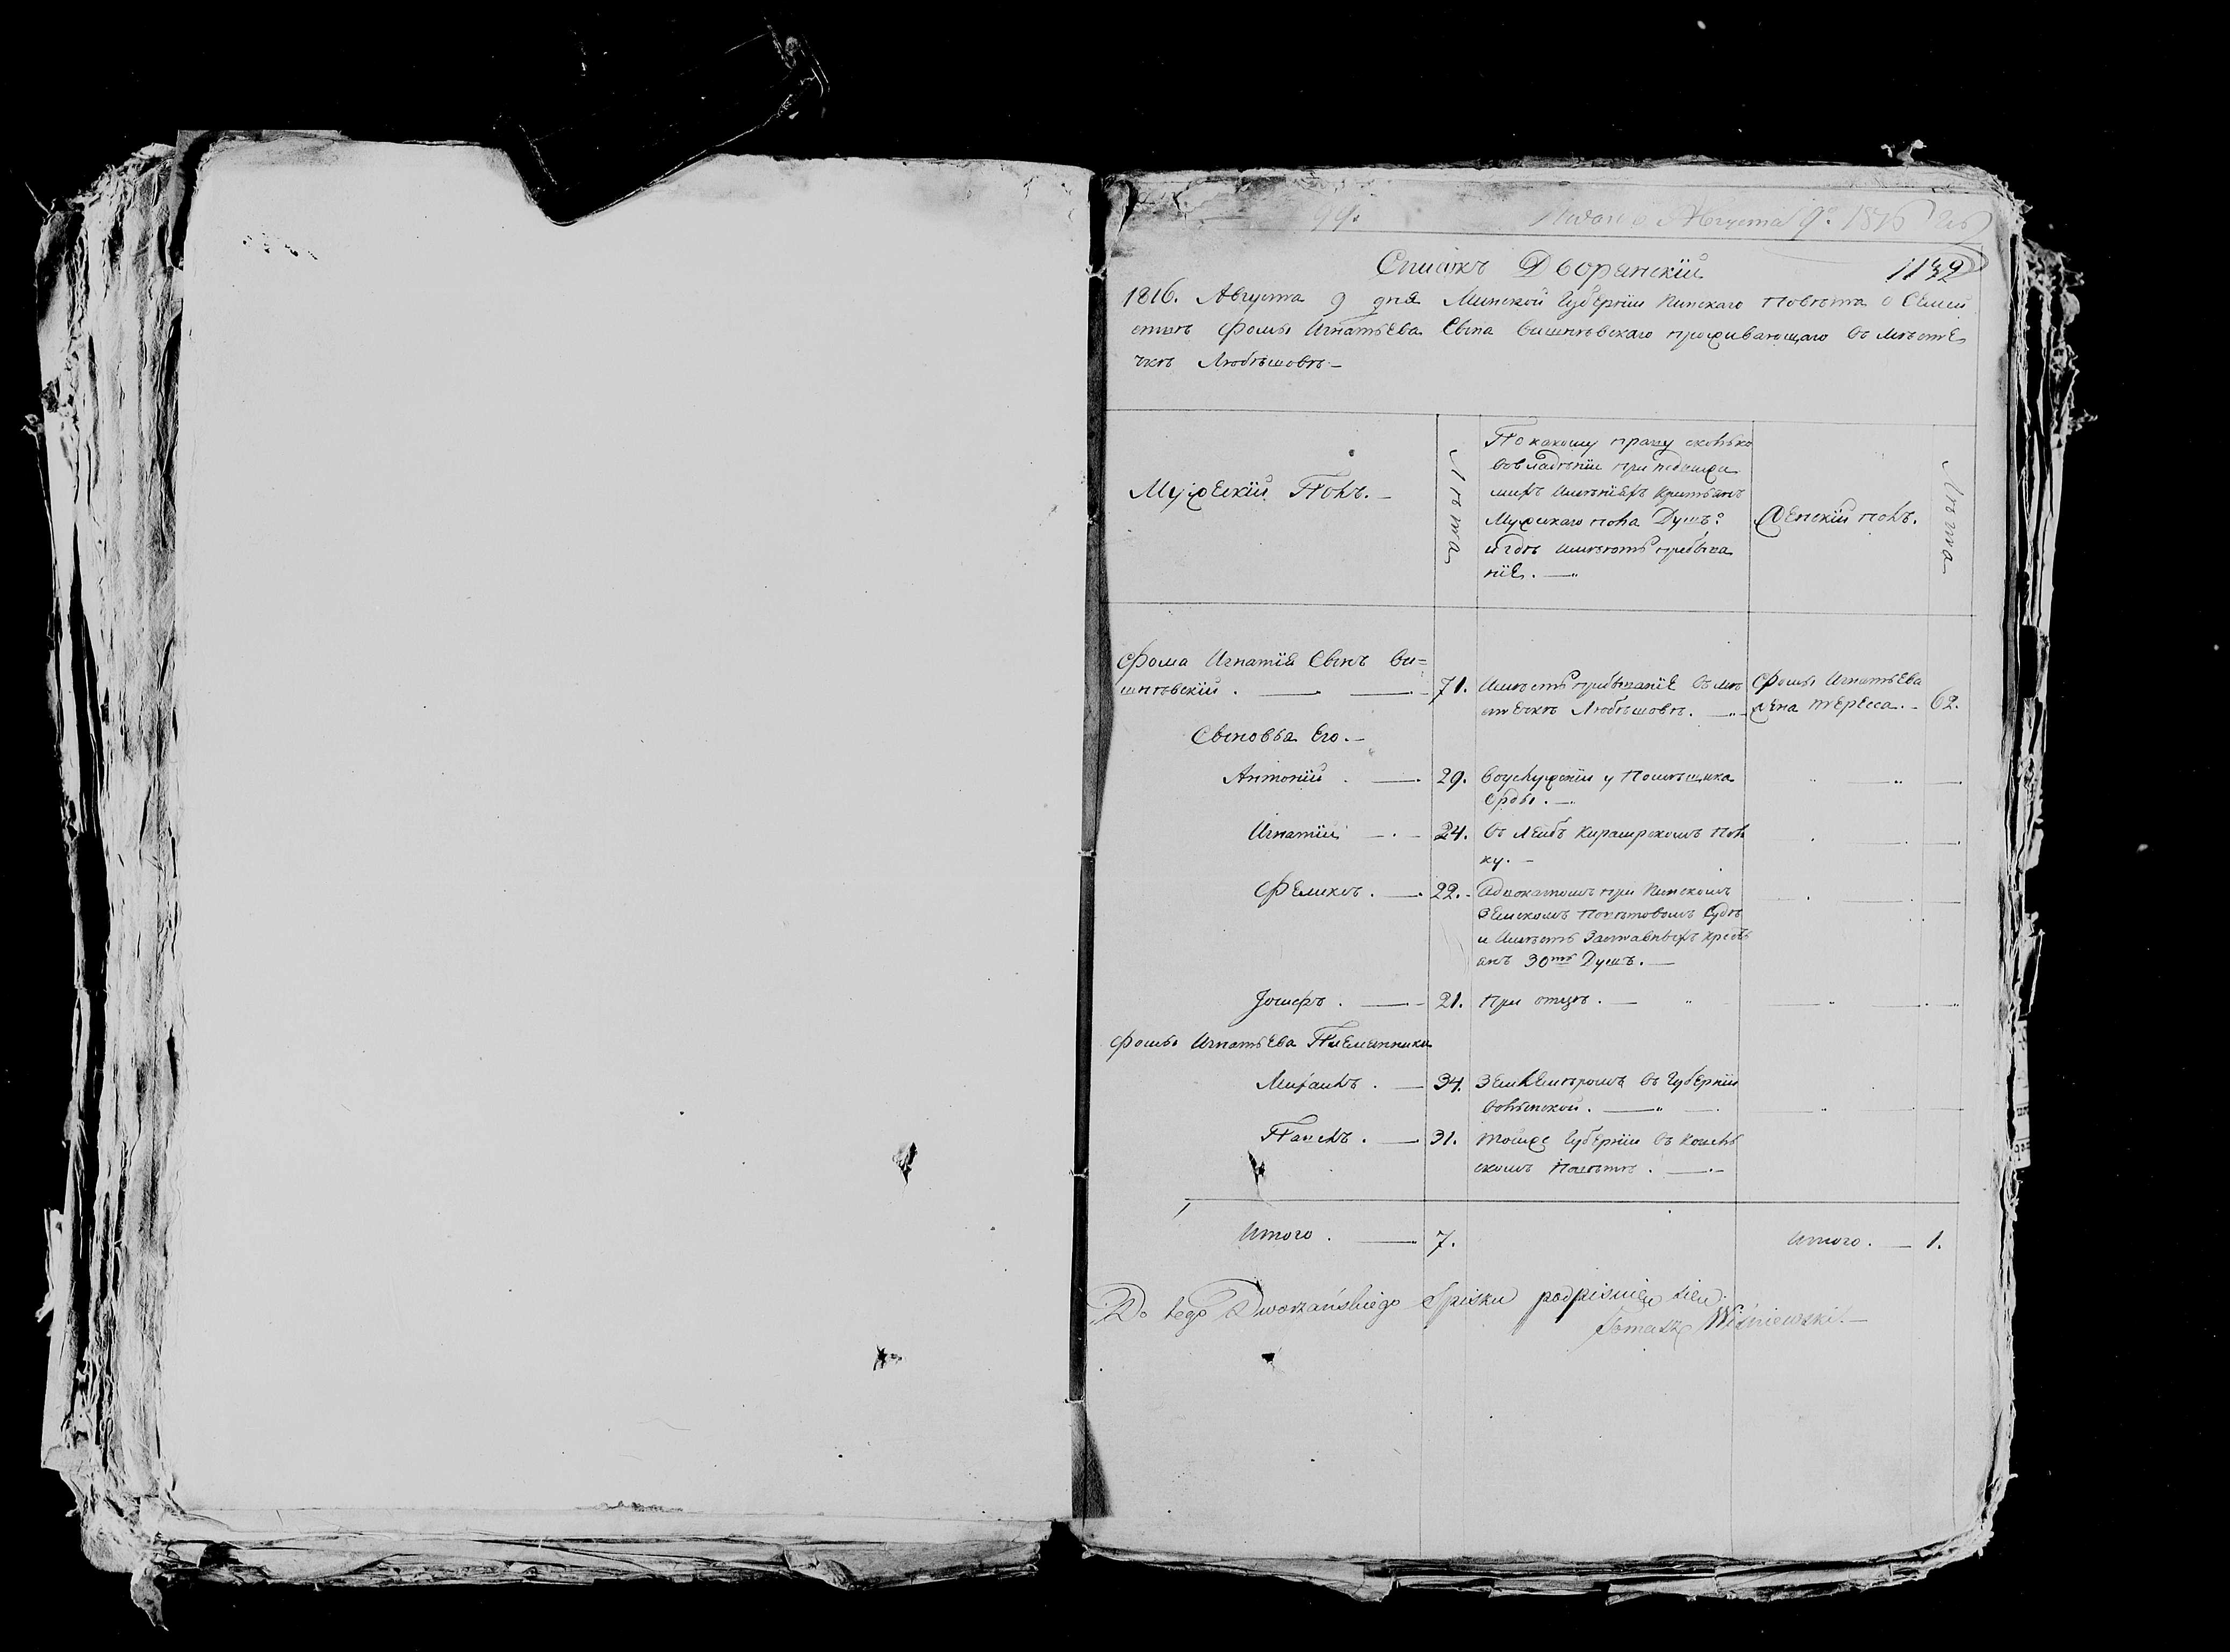 Августа 9º 1816
Списокъ Дворянскій
1132
1816. Августа 9 дня Минской Губерніи Пинскаго Повѣта о Семей
ствѣ Фомы Игнатьева Сына Вишнѣвскаго проживающаго въ мѣсте
чкѣ Любѣшовѣ. —
Мужескій Полъ. —
Лѣта
По какому праву сколько
во владѣніи при недвижи
михъ имѣніяхъ крестьянъ
Мужскаго пола Душъ:
и гдѣ имѣютъ пребыва
ніе. —
Женскій полъ.
Лѣта
Фома Игнатія Сынъ Ви=
шнѣвскій. — 71. Имѣетъ пребываніе въ мѣ
стечкѣ Любѣшовѣ. — Фомы Игнатьева
жена Тересса. — 62.
Сыновья Его. —
Антоній. — 29. Во услуженіи у Помѣщика
Орды. —
Игнатій — 24. въ Лейбъ Кирасирскомъ пол
ку. —
Феликсъ. — 22. Адвокатомъ при Пинскомъ
Земскомъ Повѣтовомъ Судѣ
и имѣетъ Заставныхъ кресть
янъ 30ть Душъ. —
Іосифъ. — 21. При отцѣ. —
Фомы Игнатьева Племянники
Михаилъ. — 34. Землемѣромъ въ Губерніи
Волынской. —
Павелъ. — 31. тойже Губерніи въ Ковель
скомъ Повѣтѣ. —
Итого. — 7. Итого. — 1.
Do tego Dworzańskiego Spisku podpisuię się
Tomasz Wiśniewski. —